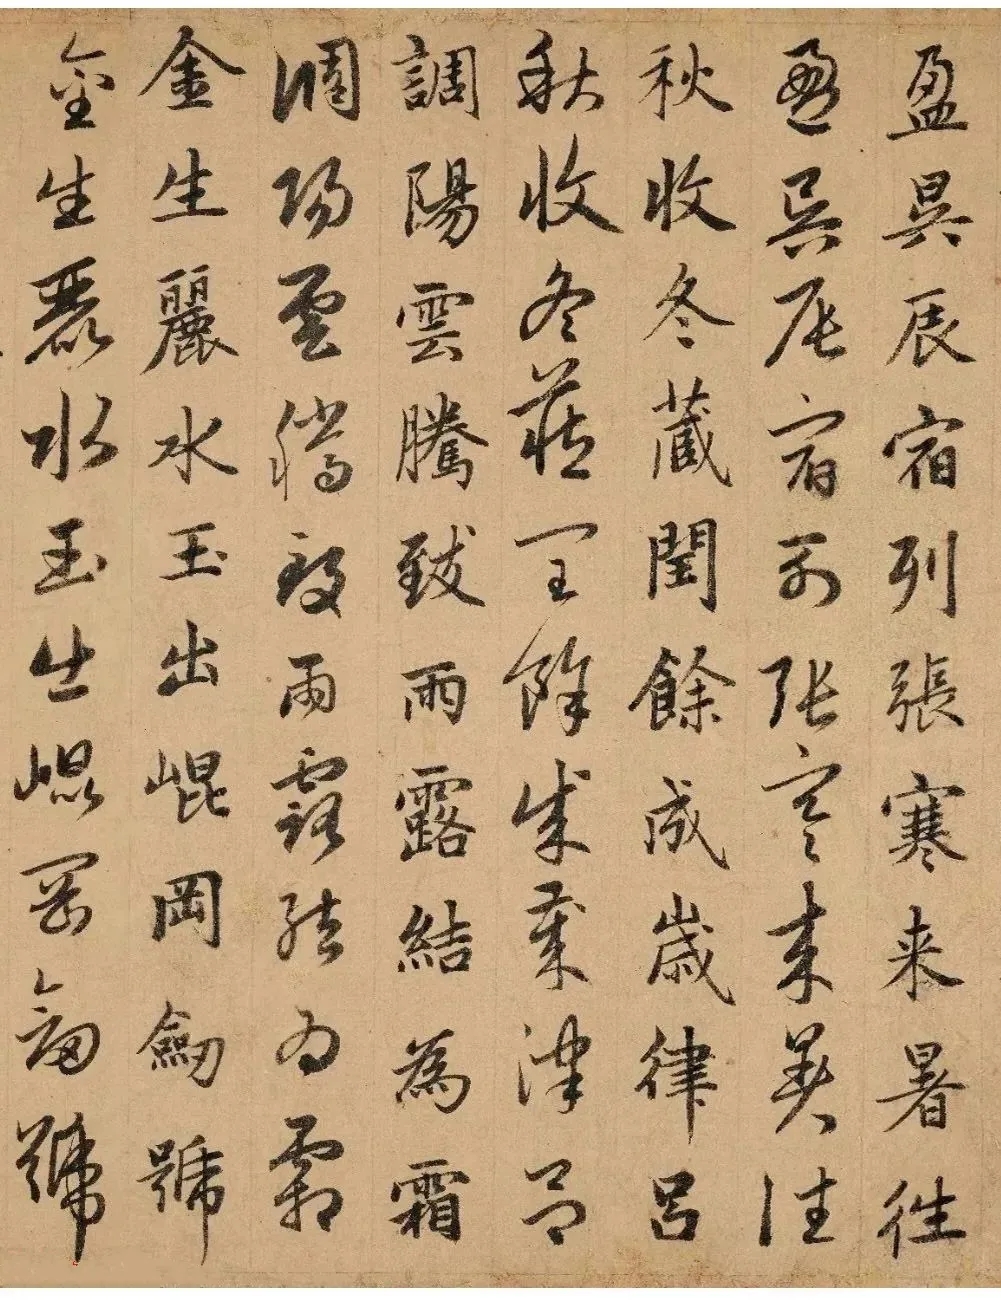 盈昃辰宿列張寒来暑往
盈昃辰宿列張寒来暑往
秋收冬藏閏餘成歲律呂
秋收冬藏閏餘成歲律呂
調陽雲騰致雨露結為霜
調陽雲騰致雨露結為霜
金生麗水玉出崐岡劒號
金生麗水玉出崐岡劒號